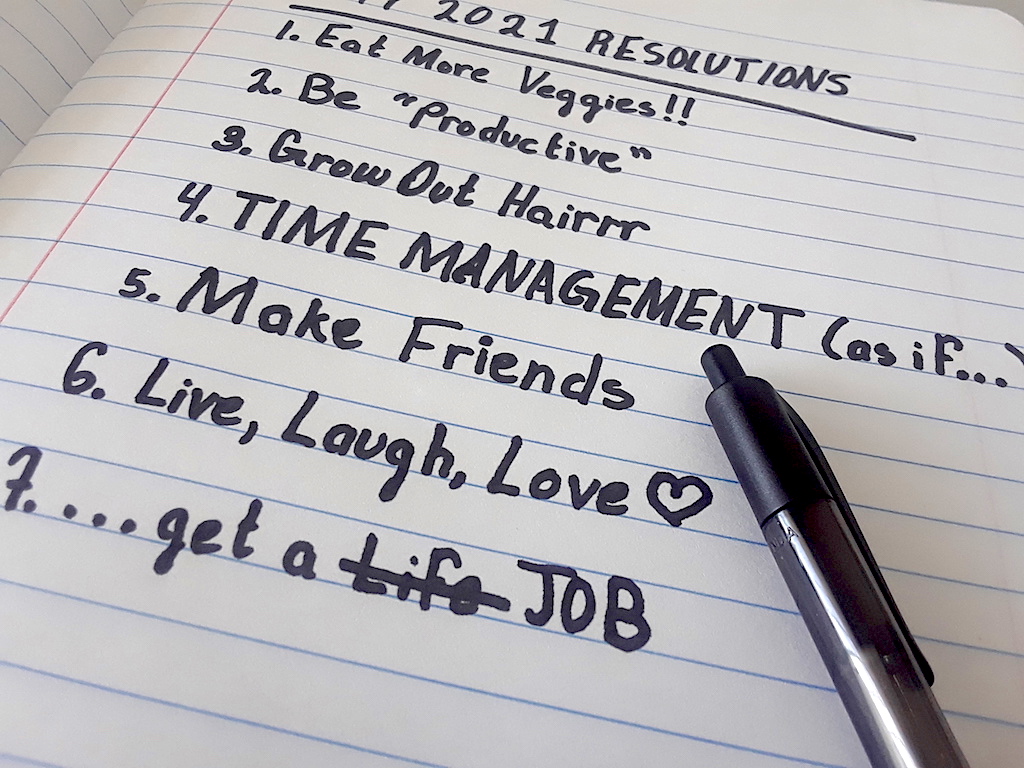 2021 RESOLUTIONS
1. Eat More Veggies!!
2. Be "Productive"
3. Grow Out Hairrr
4. TIME MANAGEMENT (as if...)
5. Make Friends
6. Live, Laugh, Love ♡
7. ...get a Life JOB